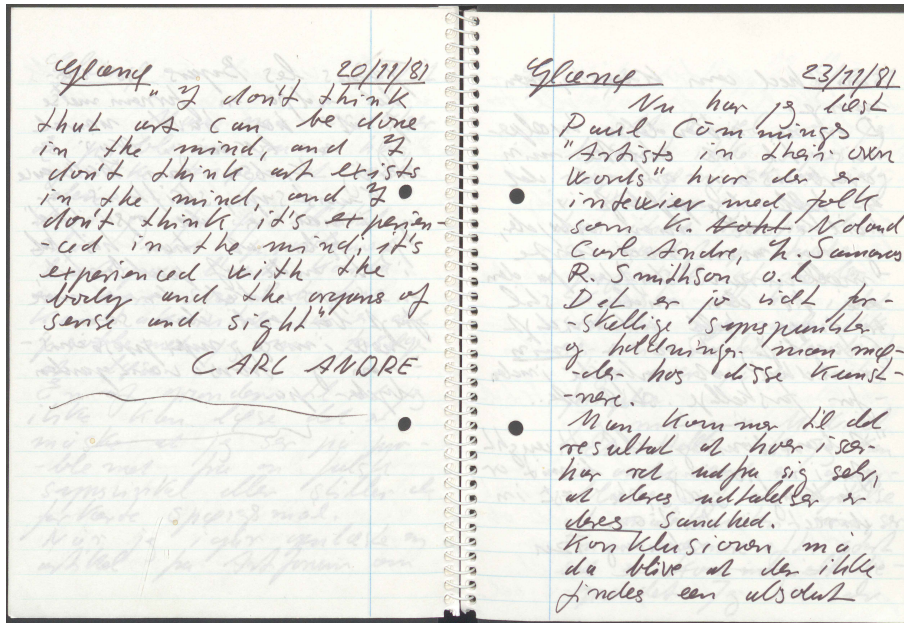 Gland 20/11/81
"I don't think
that art can be done
in the mind, and I
don't think art exists
in the mind, and I
don't think it's experien-
-ced in the mind, it's
experienced with the
body and the organs of
sense and sight"
CARL ANDRE
Gland 23/11/81
Nu har jeg læst
Paul Cummings
"Artists in their own
Words" hvor der er
interwier med folk
som K. Noland
Carl Andre, L. Samaras
R. Smithson o.l
Det er jo vidt for-
-skellige synspunkter
og holdninger man mø-
-der hos disse Kunst-
-nere.
Man Kommer til det
resultat at hver især
har ret udfra sig selv,
at deres udtalelser er
deres Sandhed.
Konklusionen må
da blive at der ikke
findes een absolut